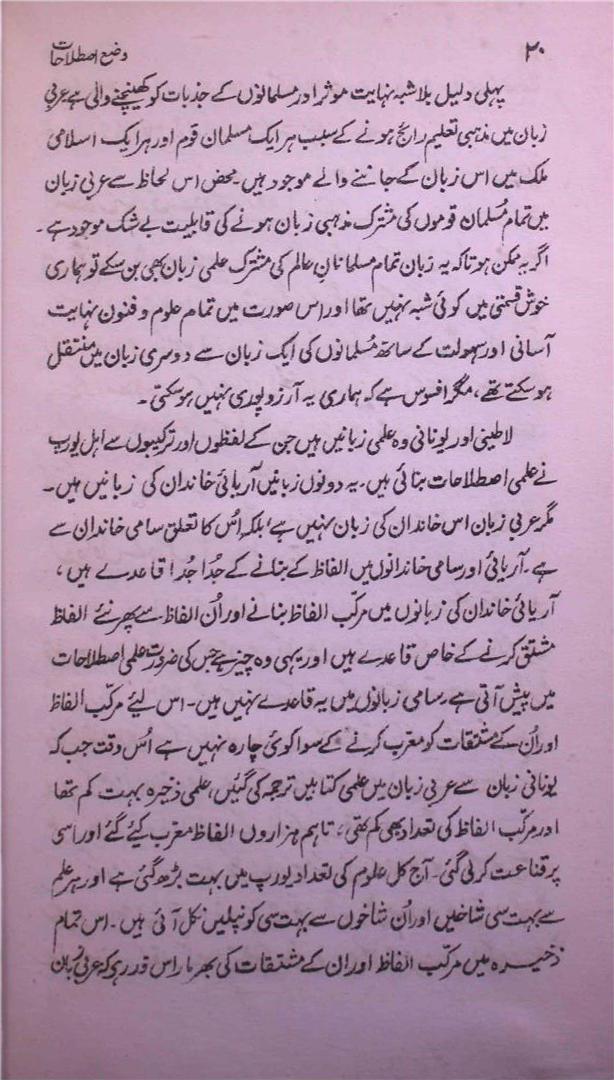 ۲۰
وضع اصطلاحات
پہلی دلیل بلاشبہ نہایت موثر اور مسلمانوں کے جذبات کو کھینچنے والی ہے عربی
زبان میں مذہبی تعلیم رائج ہونے کے سبب ہر ایک مسلمان قوم اور ہر ایک اسلامی
ملک میں اس زبان کے جاننے والے موجود ہیں۔ محض اس لحاظ سے عربی زبان
میں تمام مُسلمان قوموں کی مشترک مذہبی زبان ہونے کی قابلیت بے شک موجود ہے۔
اگر یہ ممکن ہوتا کہ یہ زبان تمام مسلمانانِ عالم کی مشترک علمی زبان بھی بن سکے تو ہماری
خوش قسمتی میں کوئی شبہ نہیں تھا اور اس صورت میں تمام علوم و فنون نہایت
آسانی اور سہولت کے ساتھ مُسلمانوں کی ایک زبان سے دوسری زبان میں منتقل
ہو سکتے تھے، مگر افسوس ہے کہ ہماری یہ آرزو پوری نہیں ہو سکتی۔
لاطینی اور یونانی وہ علمی زبانیں ہیں جن کے لفظوں اور ترکیبوں سے اہل یورپ
نے علمی اصطلاحات بنائی ہیں۔ یہ دونوں زبانیں آریائی خاندان کی زبانیں ہیں۔
مگر عربی زبان اس خاندان کی زبان نہیں ہے، بلکہ اُس کا تعلق سامی خاندان سے
ہے۔ آریائی اور سامی خاندانوں میں الفاظ کے بنانے کے جُدا جُدا قاعدے ہیں،
آریائی خاندان کی زبانوں میں مرکّب الفاظ بنانے اور اُن الفاظ سے پھر نئے الفاظ
مشتق کرنے کے خاص قاعدے ہیں اور یہی وہ چیز ہے جس کی ضرورت علمی اصطلاحات
میں پیش آتی ہے۔ سامی زبانوں میں یہ قاعدے نہیں ہیں۔ اس لیئے مرکّب الفاظ
اور اُن کے مشتقات کو معرّب کرنے کے سوا کوئی چارہ نہیں ہے اُس وقت جب کہ
یونانی زبان سے عربی زبان میں علمی کتابیں ترجمہ کی گئیں، علمی ذخیرہ بہت کم تھا
اور مرکّب الفاظ کی تعداد بھی کم تھی، تاہم ہزاروں الفاظ معرّب کیئے گئے اور اسی
پر قناعت کر لی گئی۔ آج کل علوم کی تعداد یورپ میں بہت بڑھ گئی ہے اور ہر علم
سے بہت سی شاخیں اور اُن شاخوں سے بہت سی کونپلیں نکل آئی ہیں۔ اس تمام
ذخیرہ میں مرکّب الفاظ اور ان کے مشتقات کی بھر مار اس قدر رہی کہ عربی زبان